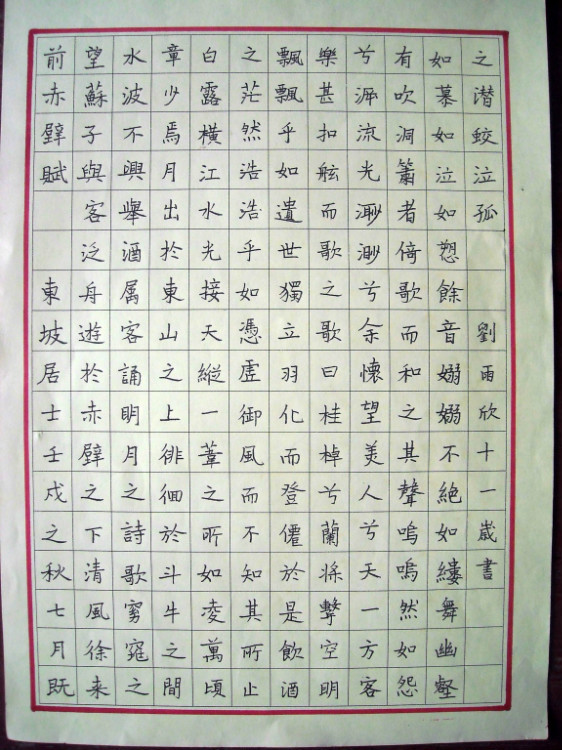 前赤壁賦 東坡居士壬戌之秋七月既
望蘇子與客泛舟遊於赤壁之下清風徐来
水波不興舉酒属客誦明月之詩歌窈窕之
章少焉月出於東山之上徘徊於斗牛之間
白露橫江水光接天縱一葦之所如凌萬頃
之茫然浩浩乎如憑虛御風而不知其所止
飄飄乎如遺世獨立羽化而登僊於是飲酒
樂甚扣舷而歌之歌曰桂棹兮蘭槳擊空明
兮泝流光渺渺兮余懷望美人兮天一方客
有吹洞簫者倚歌而和之其聲嗚嗚然如怨
如慕如泣如愬餘音嫋嫋不絕如縷舞幽壑
之潜蛟泣孤 劉雨欣十一歲書